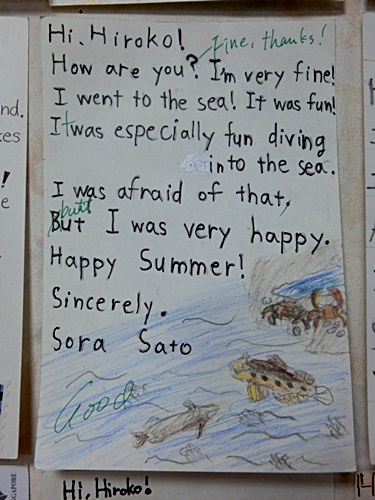 Hi, Hiroko!
Fine, thanks!
How are you? I'm very fine!
I went to the sea! It was fun!
It was especially fun diving
into the sea.
I was afraid of that,
but
But I was very happy.
Happy Summer!
Sincerely.
Sora Sato
Good
nd.
kes
!
e
GAPORE
Hi, Hiroko!